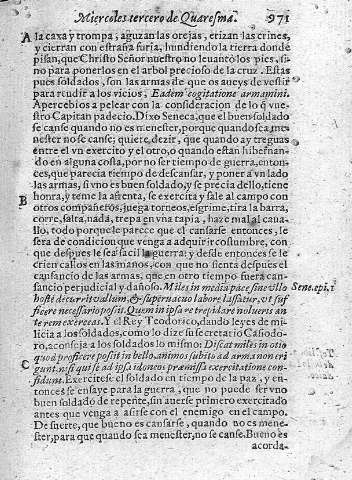 Miercoles tercero de Quaresma. 971
A la caxa y trompa, aguzan las orejas, erizan las crines,
y cierran con estraña furia, hundiendo la tierra donde
pisan, que Christo Señor nuestro no leuantò los pies, si
no para ponerlos en el arbol precioso de la cruz. Estas
pues soldados, son las armas de que os aueys de vestir
para rendir a los vicios, Eadem cogitatione armamini.
Apercebios a pelear con la consideracion de lo q̃ vue
stro Capitan padecio. Dixo Seneca, que el buen soldado
se canse quando no es menester, porque quando sea me
nester no se canse; quiere dezir, que quando ay treguas
entre vn exercito y el otro, o quando estàn hibernan-
do en alguna costa, por no ser tiempo de guerra, enton-
ces, que parecia tiempo de descansar, y poner a vn lado
las armas, si vno es buen soldado, y se precia dello, tiene
B honra, y teme la afrenta, se exercita y sale al campo con
otros compañeros, juega torneos, esgrime, tira la barra,
corre, salta, nada, trepa en vna tapia, haze mal al caua-
llo, todo porque le parece que el cansarse entonces, le
sera de condicion que venga a adquirir costumbre, con
que despues le sea facil la guerra: y desde entonces se le
crien callos en las manos, con que no sienta despues el
cansancio de las armas, que en otro tiempo fuera can-
sancio perjudicial y dañoso. Miles in media pace sine vllo Sene. epi. 1
hoste decurrit vallum, & superuacuo labore lassatur, vt suf
ficere necessario possit. Quem in ipsa re trepidare nolueris an-
te rem exerceas. Y el Rey Teodorico, dando leyes de mi-
licia a los soldados, como lo dize su secretario Casiodo-
ro, aconseja a los soldados lo mismo: Discat miles in otio
quod proficere possit in bello. animos subito ad arma non eri
C gunt, nisi qui se ad ipsa idoneos præmissa exercitatione con-
fidunt. Exercitese el soldado en tiempo de la paz, y en-
tonces se ensaye para la guerra, que no puede ser vno
buen soldado de repente, sin auerse primero exercitado
antes que venga a asirse con el enemigo en el campo.
De suerte, que bueno es cansarse, quando no es menes-
ter, para que quando sea menester, no se canse. Bueno es
acorda-